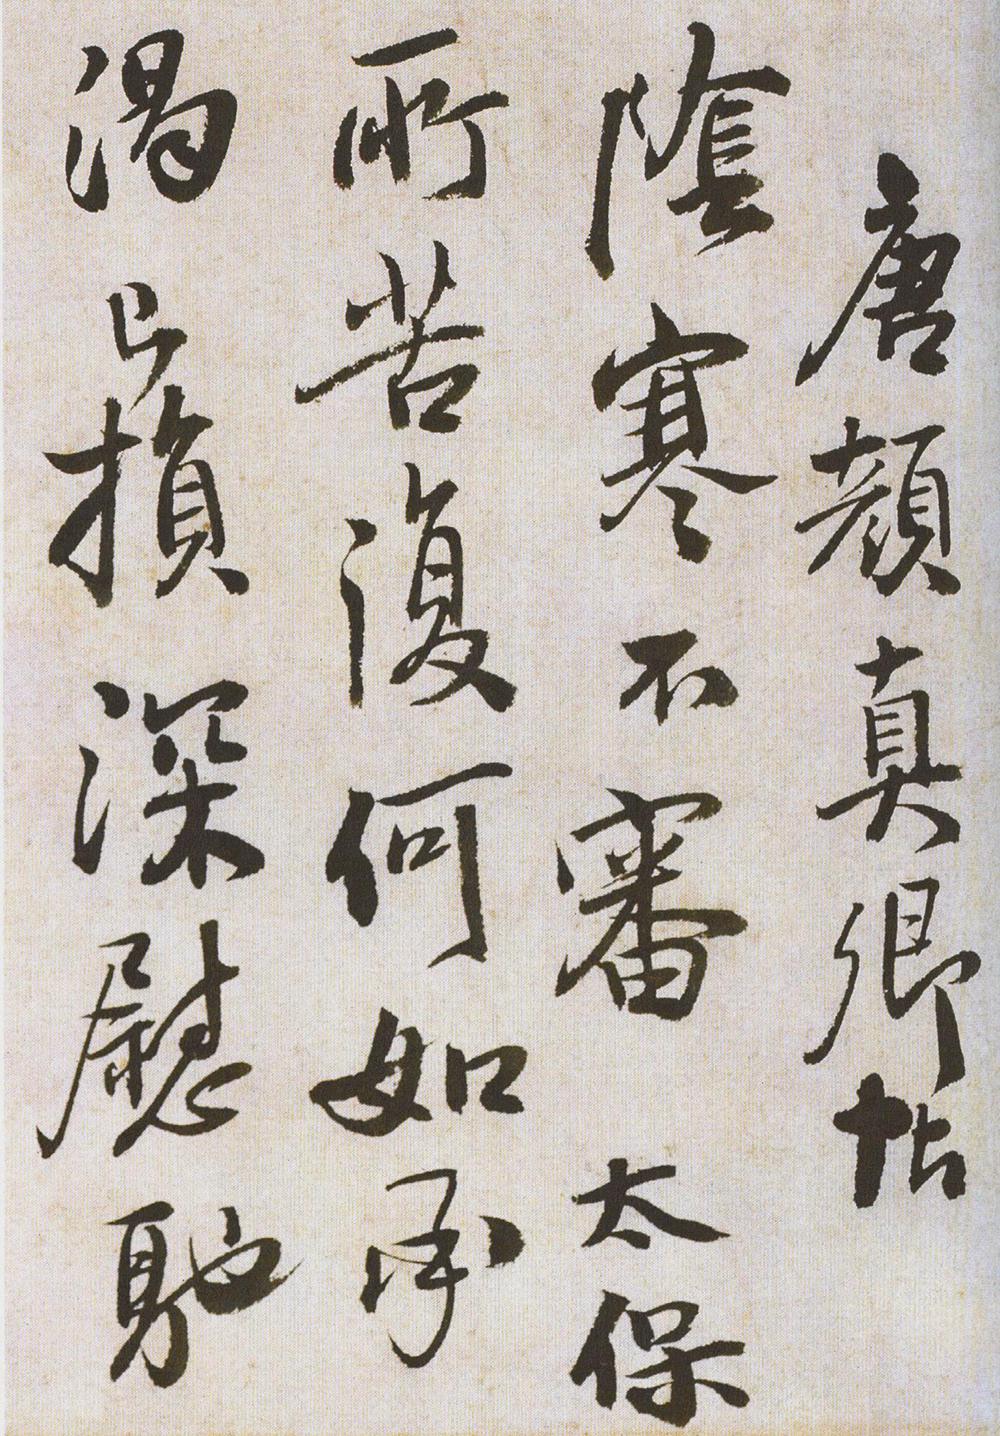 唐顏真卿帖
陰寒不審太保
所苦復何如承
渴已損深慰馳